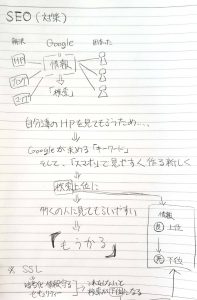 SEO (対策)
Google
HP
情報
ブログ
「検索」
自分達のHPを見てもらうため....
Googleが求める「キーワード」
そして、「スマホ」で見やすく作る新しく
検索上位に
多くの人に見てもらいやすい
情報
良 上位
悪 下位
『もうかる』
※ SSL
セキュリティー